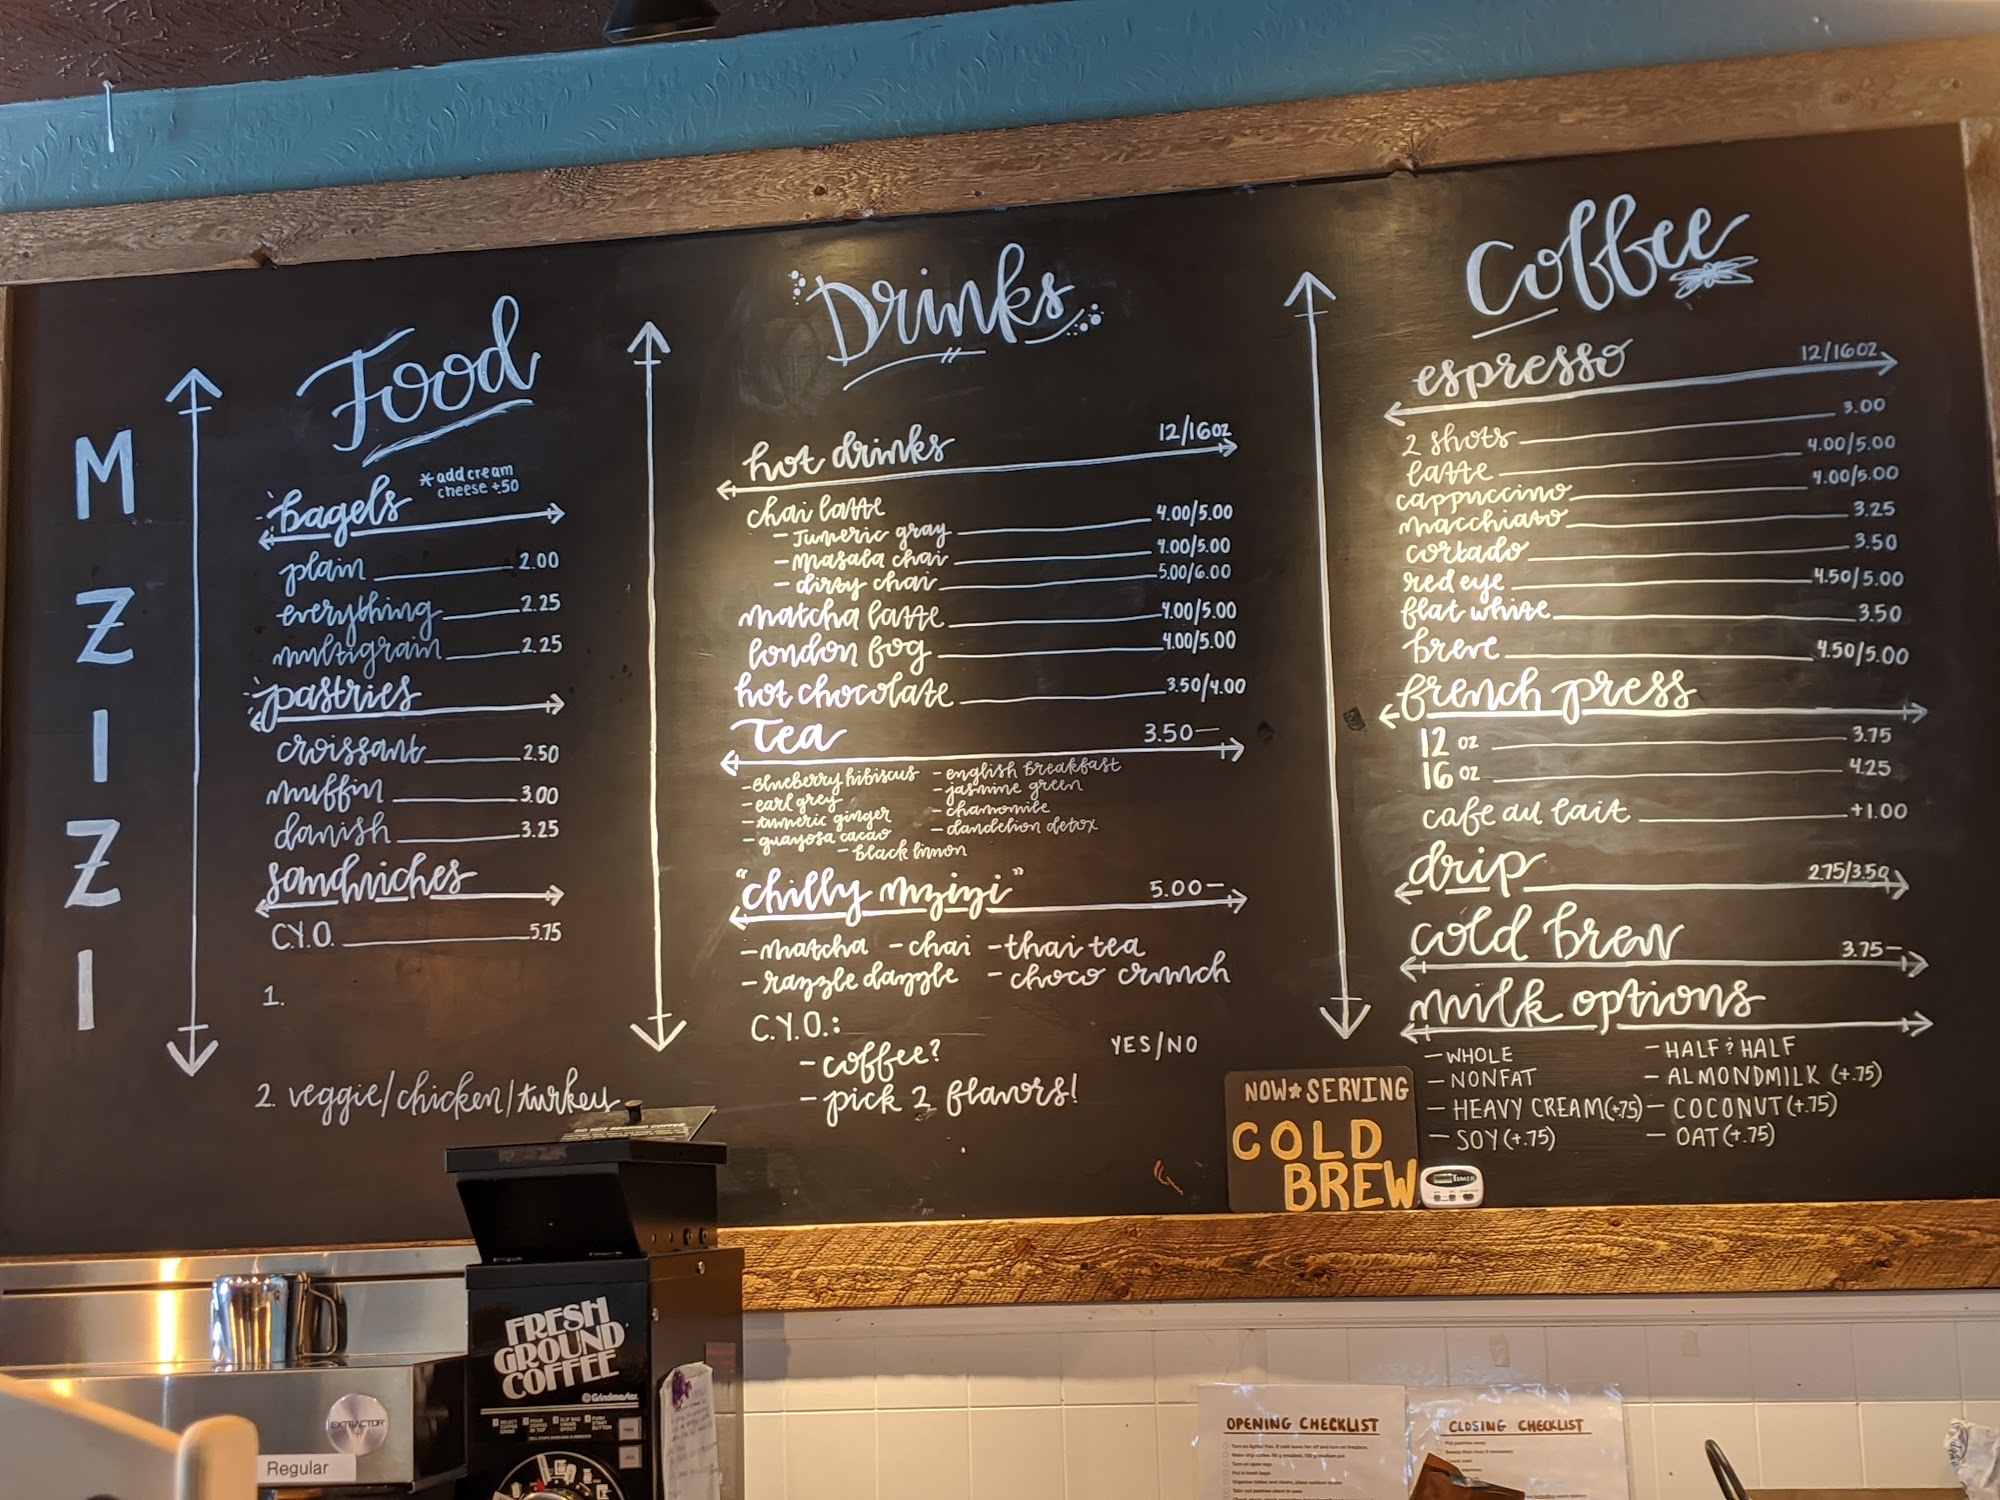 MZIZI
Food
bagels
* add cream
cheese +.50
plain 2.00
everything 2.25
multigrain 2.25
pastries
croissant 2.50
muffin 3.00
danish 3.25
sandwiches
C.Y.O. 5.75
1.
2. veggie/chicken/turkey
Drinks
hot drinks 12/16oz
chai latte
- Tumeric gray 4.00/5.00
- masala chai 4.00/5.00
- dirty chai 5.00/6.00
matcha latte 4.00/5.00
london fog 4.00/5.00
hot chocolate 3.50/4.00
Tea 3.50-
- Blueberry hibiscus - english breakfast
- earl grey - jasmine green
- tumeric ginger - chamomile
- guayosa cacao - dandelion detox
- black limon
"chilly mzizi" 5.00-
- matcha - chai - thai tea
- razzle dazzle - choco crunch
C.Y.O.:
- coffee? YES/NO
- pick 2 flavors!
Coffee
espresso 12/16oz
2 shots 3.00
latte 4.00/5.00
cappuccino 4.00/5.00
macchiato 3.25
cortado 3.50
red eye 4.50/5.00
flat white 3.50
breve 4.50/5.00
french press
12 oz 3.75
16 oz 4.25
cafe au lait +1.00
drip 2.75/3.50
cold brew 3.75-
milk options
- WHOLE - HALF & HALF
- NONFAT - ALMONDMILK (+.75)
- HEAVY CREAM (+.75) - COCONUT (+.75)
- SOY (+.75) - OAT (+.75)
NOW * SERVING
COLD
BREW
TIMER
DO NOT REGRIND COFFEE
FRESH
GROUND
COFFEE
Grindmaster
EXTRACTOR
Regular
OPENING CHECKLIST
Turn on open sign
Put in fresh bags
CLOSING CHECKLIST
Put pastries away